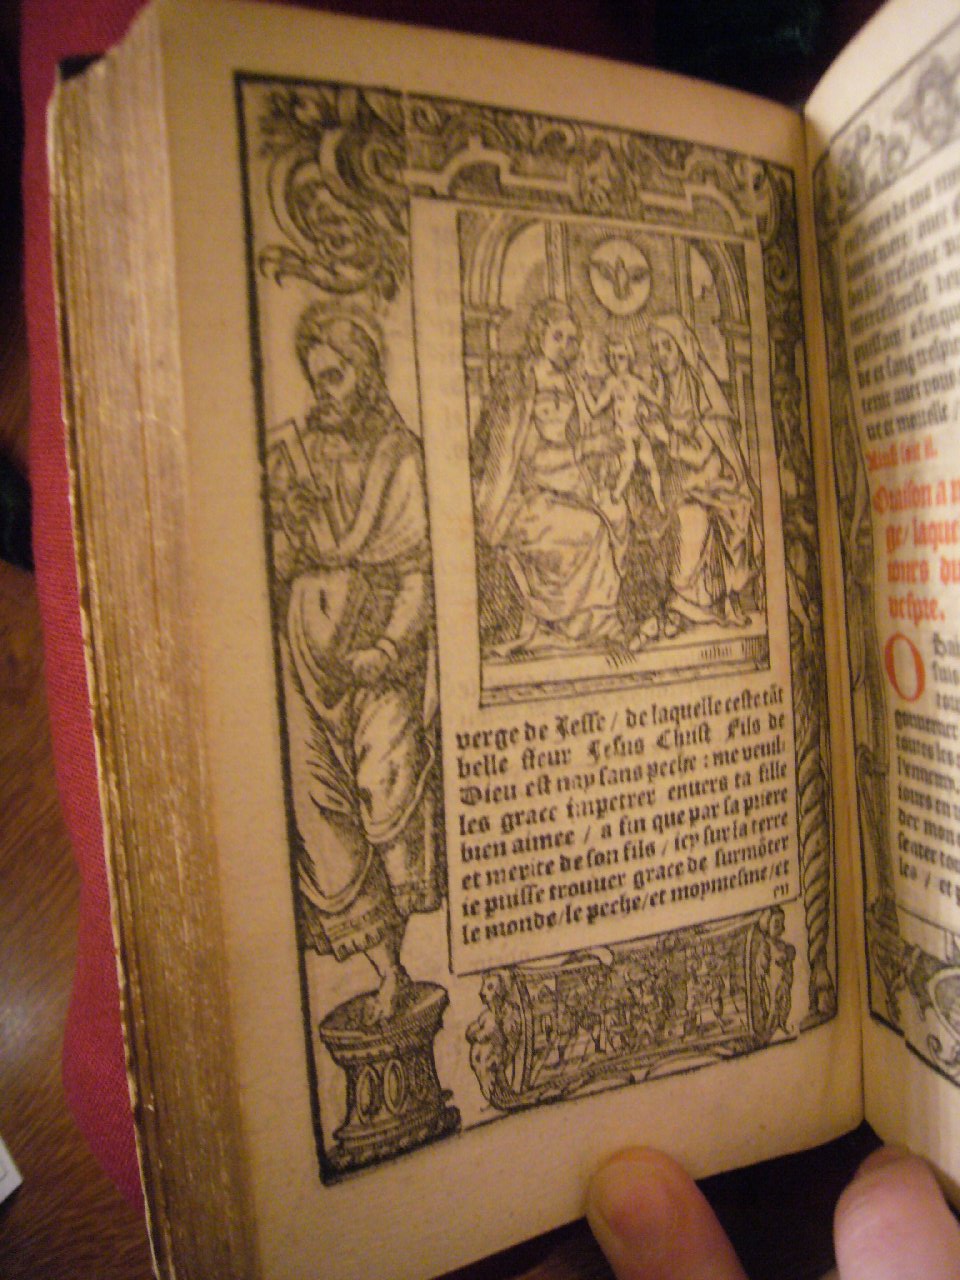 verge de Jesse / de laquelle ceste tãt
belle fleur Jesus Christ Fils de
Dieu est nay sans peche : me veuil-
les grace impetrer enuers ta fille
bien aimee / a fin que par sa priere
et merite de son fils / icy sur la terre
ie puisse trouuer grace de surmõter
le monde / le peche / et moymesme / et
en
de et sang
tenir auec vous
Ainsi soit il.
Oraison a
ge / laque
iours du
vespre.
O
suis
tou
gouuerner
toutes les
l'ennemy
iours en
der mon
les / et